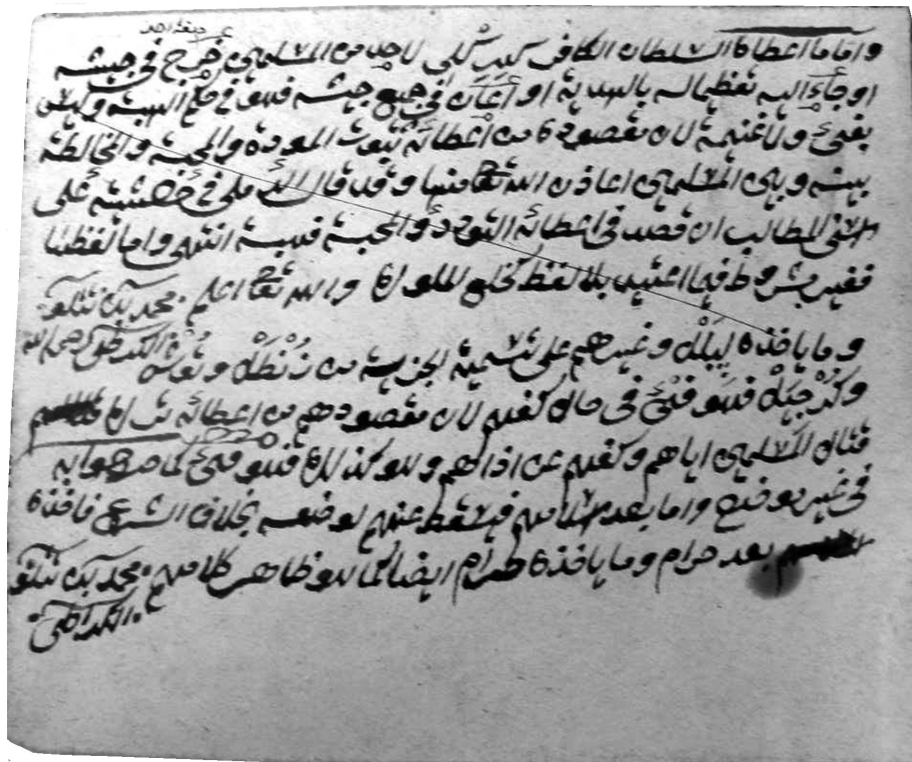 واما ما اعطاه السلطان الكافر لاحد من المسلمين خرج في جيشه
او جاء اليه تعظيما له بالهدية او أعان في جميع جيشه فهو في حكم الهبة وليس
بفيئ ولا غنيمة لان مقصوده من اعطائه ثبوت المودة والمحبة والمخالطة
بينه وبين المسلمين اعاذن الله تعا منها وقد قال في على
اسنى المطالب ان قصد في اعطائه التودد والمحبة فهبة انتهى واما لفظها
ففيه شروط فيما اعتيد بلا لفظ كخلع الملوك والله تعا اعلم. محمد
وما ياخذه وغيرهم على تسمية الجزية من
فهو فيئ في حال كفرهم لان مقصودهم من اعطائه ترك
قتال المسلمين اياهم وكفهم عن اذاهم وهو كذلك فهو فيئ كما صرحوا به
في غير موضع واما بعد اسلامهم فيسقط عنهم لوضعه بخلاف الشرع فاخذه
بعد حرام وما ياخذه حرام ايضا كما هو ظاهر كلامهم. محمد